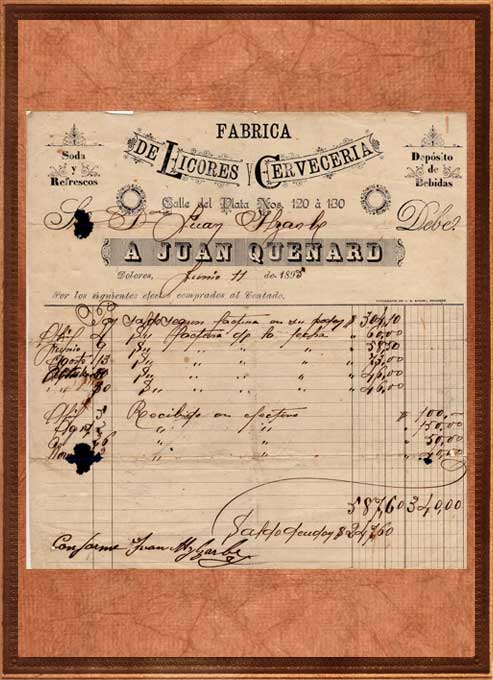 FABRICA
DE LICORES Y CERVECERIA
Soda
y
Refrescos
Depósito
de
Bebidas
Calle del Plata Nos. 120 à 130
Sr Dn Juan Debe:
A JUAN QUENARD
Dolores, Junio 11 de 1895
Por los siguientes efectos comprados al Contado.
Saldo segun factura en su poder $ 304,10
Abril factura de la fecha " 60,00
Junio 6 " " " " 58,50
Agosto 13 " " " "
" " " " 46,00
30 " " " " 46,00
Abril Recibido en efectivo $ 100,-
Agosto " " 150,00
" " 50,00
40,00
587,60 340,00
Saldo deudor $ 247,60
Conforme Juan